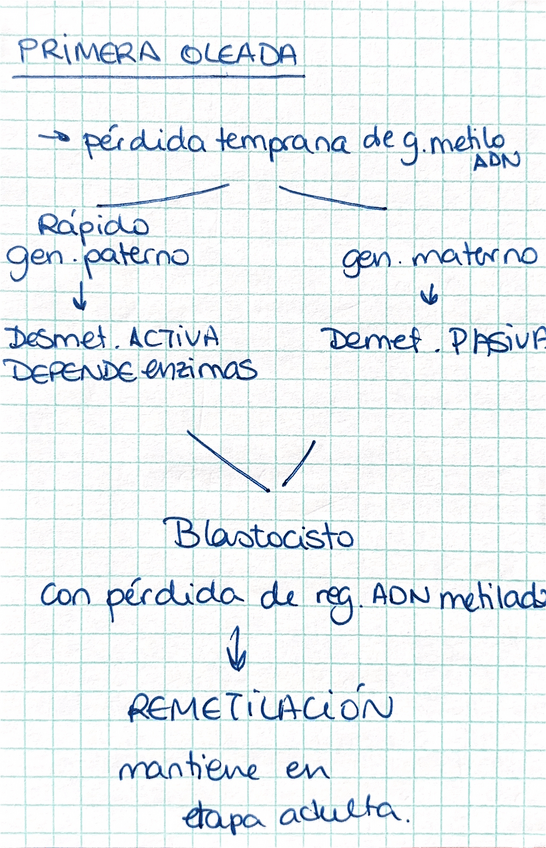 PRIMERA OLEADA
→ pérdida temprana de g. metilo
ADN
Rápido
gen. paterno
gen. materno
↓
↓
Desmet. ACTIVA
Demet. PASIVA
DEPENDE enzimas
Blastocisto
con pérdida de reg. ADN metilado
↓
REMETILACIÓN
mantiene en
etapa adulta.